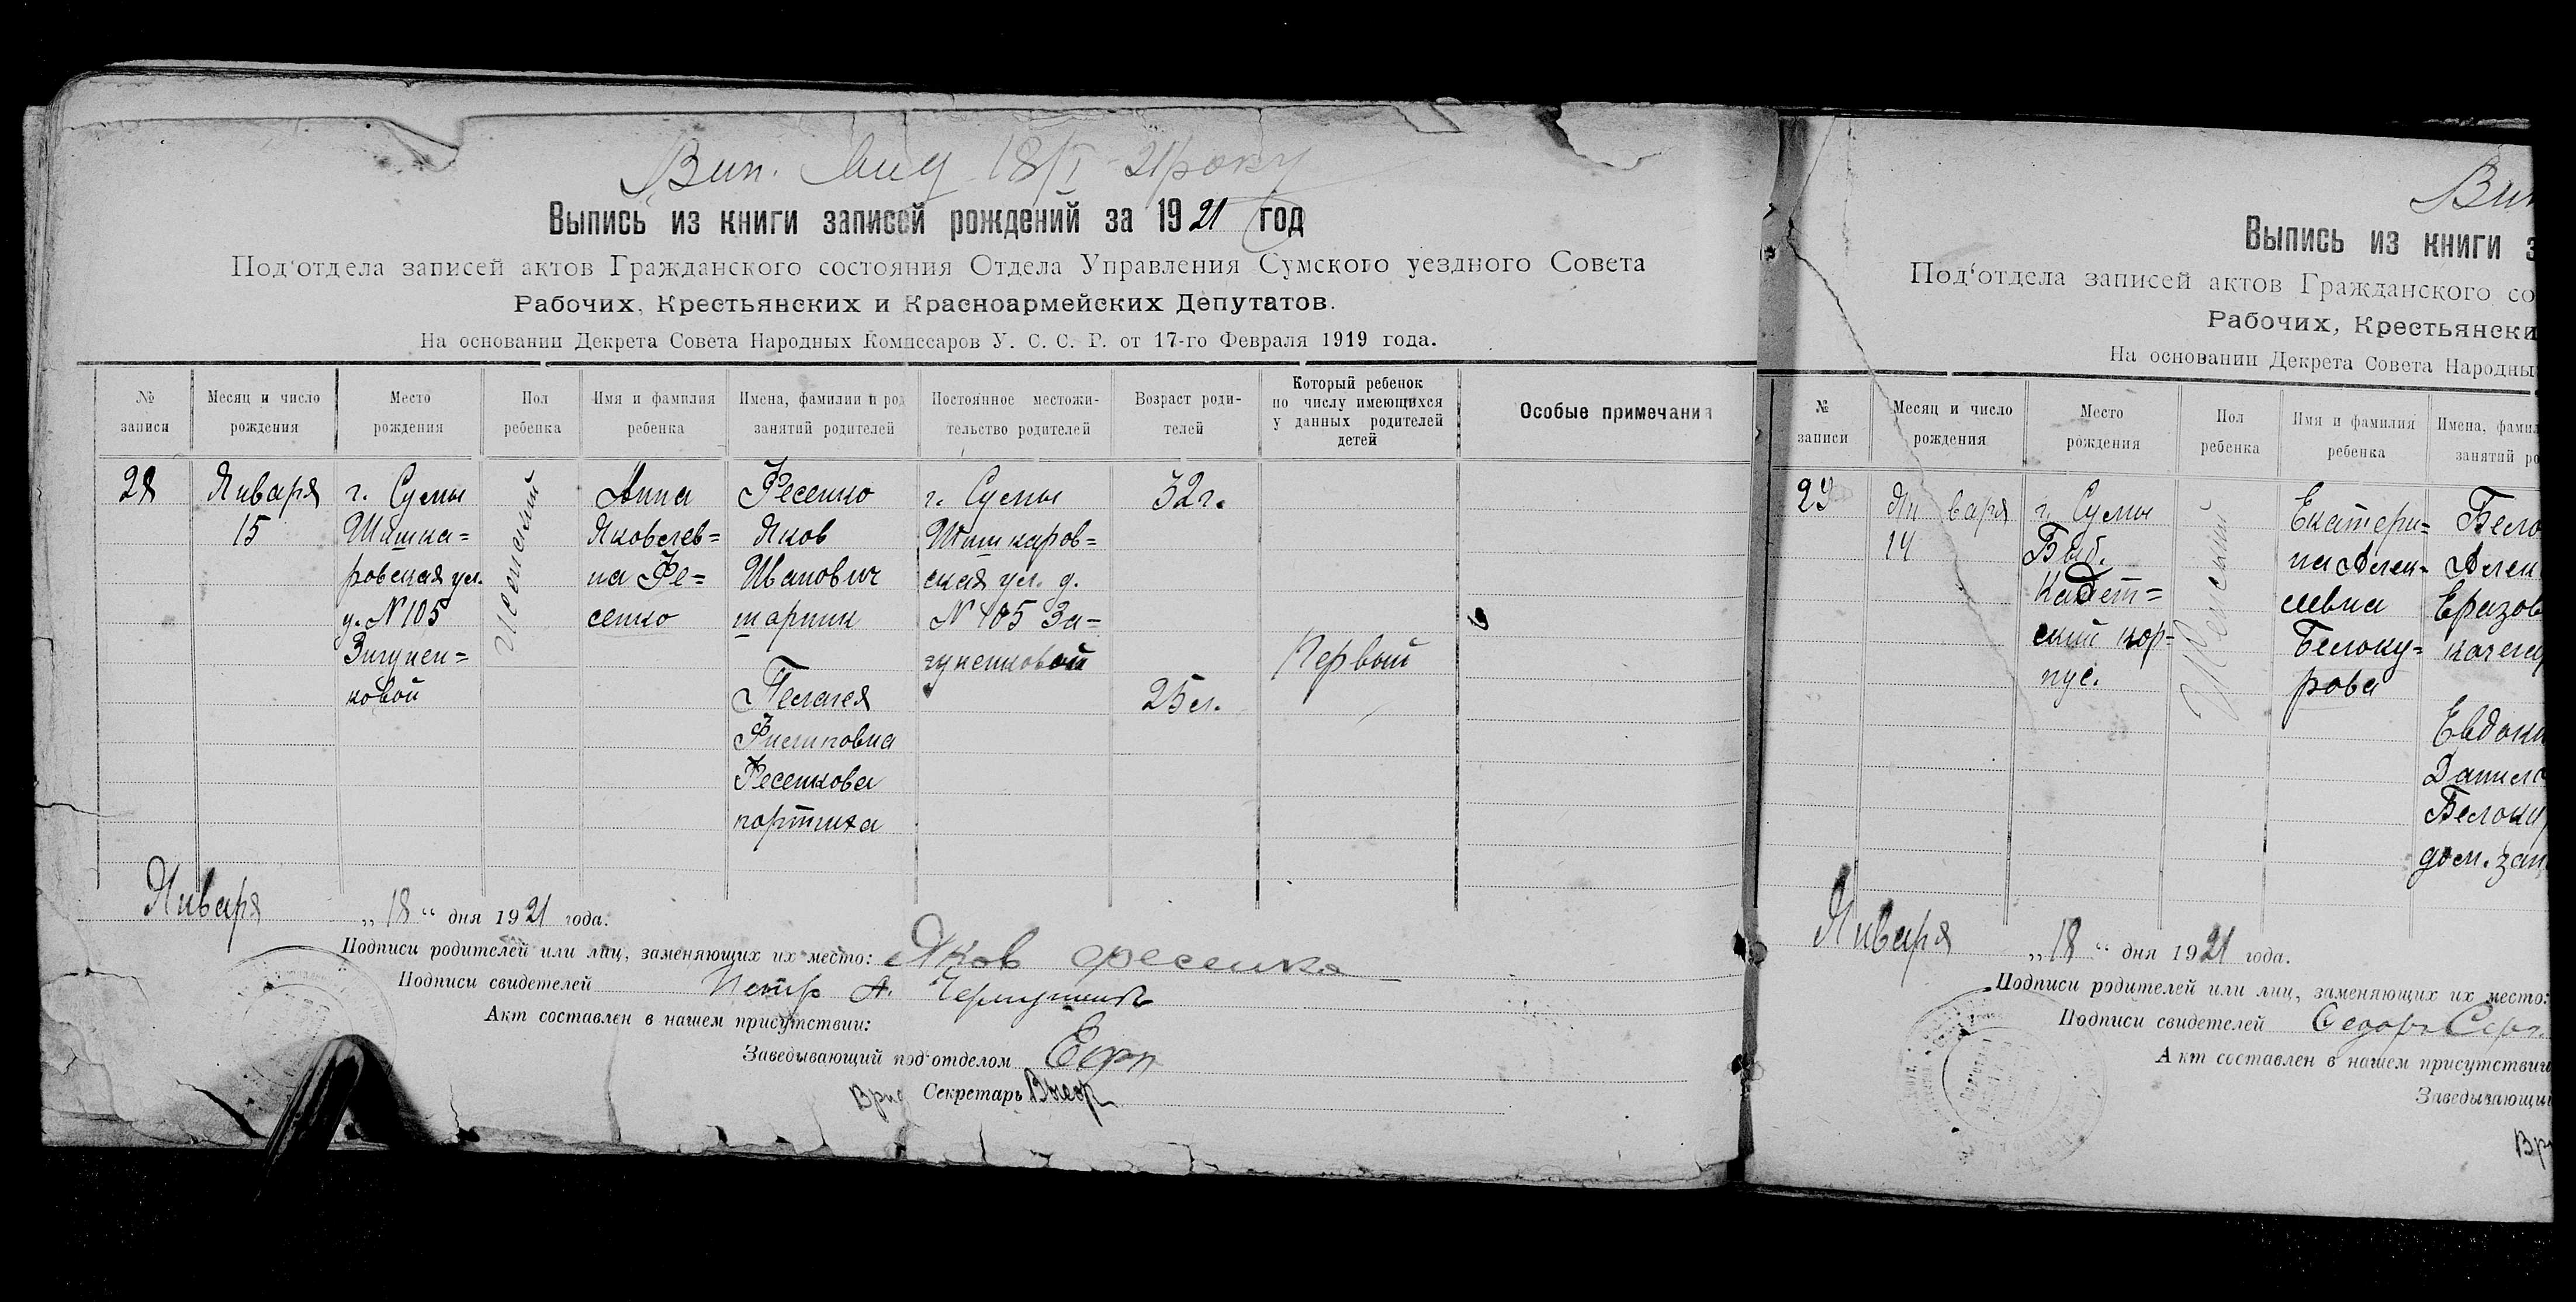 Вип. 18/I 21 року
Выпись из книги записей рождений за 1921 год
Под‘отдела записей актов Гражданского состояния Отдела Управления Сумского уездного Совета
Рабочих, Крестьянских и Красноармейских Депутатов.
На основании Декрета Совета Народных Комиссаров У. С. С. Р. от 17-го Февраля 1919 года.
№
записи
Месяц и число
рождения
Место
рождения
Пол
ребенка
Имя и фамилия
ребенка
Имена, фамилии и род
занятий родителей
Постоянное местожи-
тельство родителей
Возраст роди-
телей
Который ребенок
по числу имеющихся
у данных родителей
детей
Особые примечания
28
Января
15
г. Сумы
Шишка=
ровская ул.
д. № 105
ковой
Женский
Анна
Яковлев=
на Фе=
сенко
Фесенко
Яков
Иванович
Пелагея
Филиповна
Фесенкова
портниха
г. Сумы
Шишкаров=
ская ул. д.
№ 105 За=
32 г.
25 л.
Первый
Января „18“ дня 1921 года.
Подписи родителей или лиц, заменяющих их место: Яков Фесенко
Подписи свидетелей Петр А.
Акт составлен в нашем присутствии:
Заведывающий под‘отделом
Врид Секретарь
Вип
Выпись из книги з
Под‘отдела записей актов Гражданского со
Рабочих, Крестьянски
На основании Декрета Совета Народны
№
записи
Месяц и число
рождения
Место
рождения
Пол
ребенка
Имя и фамилия
ребенка
Имена, фамил
занятий ро
29
Января
14
г. Сумы
Быв.
Кадет=
ский кор-
пус.
Женский
Екатери=
на Алек-
сеевна
Белоку=
рова
Бело
Алек
Евдоки
Данило
Белокур
дом. зан
Января „18“ дня 1921 года.
Подписи родителей или лиц, заменяющих их место:
Подписи свидетелей
Акт составлен в нашем присутствии
Заведывающи
Вр